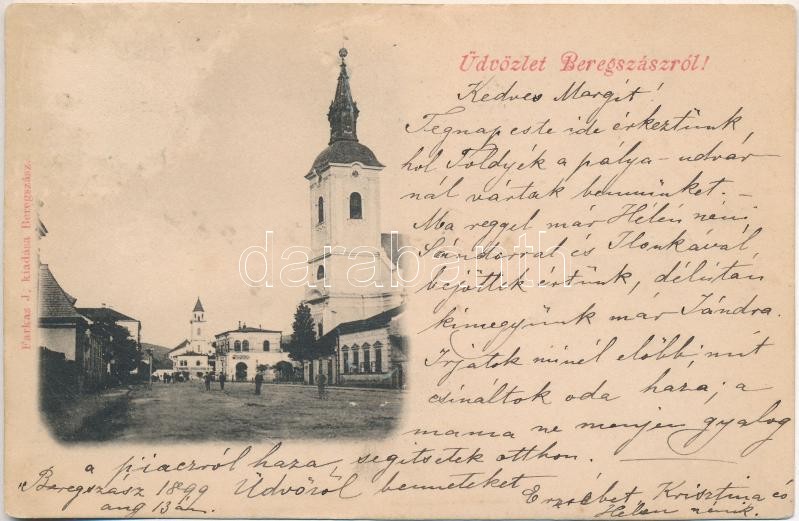 Üdvözlet Beregszászról!
Kedves Margit!
Tegnap este ide érkeztünk
hol Földyék a pálya-udvar
nál vártak bennünket. –
Ma reggel már Hélén néni
Sándorral és Ilonkával
bejöttek értünk, délután
kimegyünk már Jándra.
Irjatok minél előbb, mit
csináltok oda haza; a
mama ne menjen gyalog
a piaczról haza, segitsetek otthon.
Üdvözöl benneteket
Erzsébet Krisztina és
Hélen nénik.
Beregszász 1899
aug 13án.
Farkas J. kiadása Beregszász.
darabanth